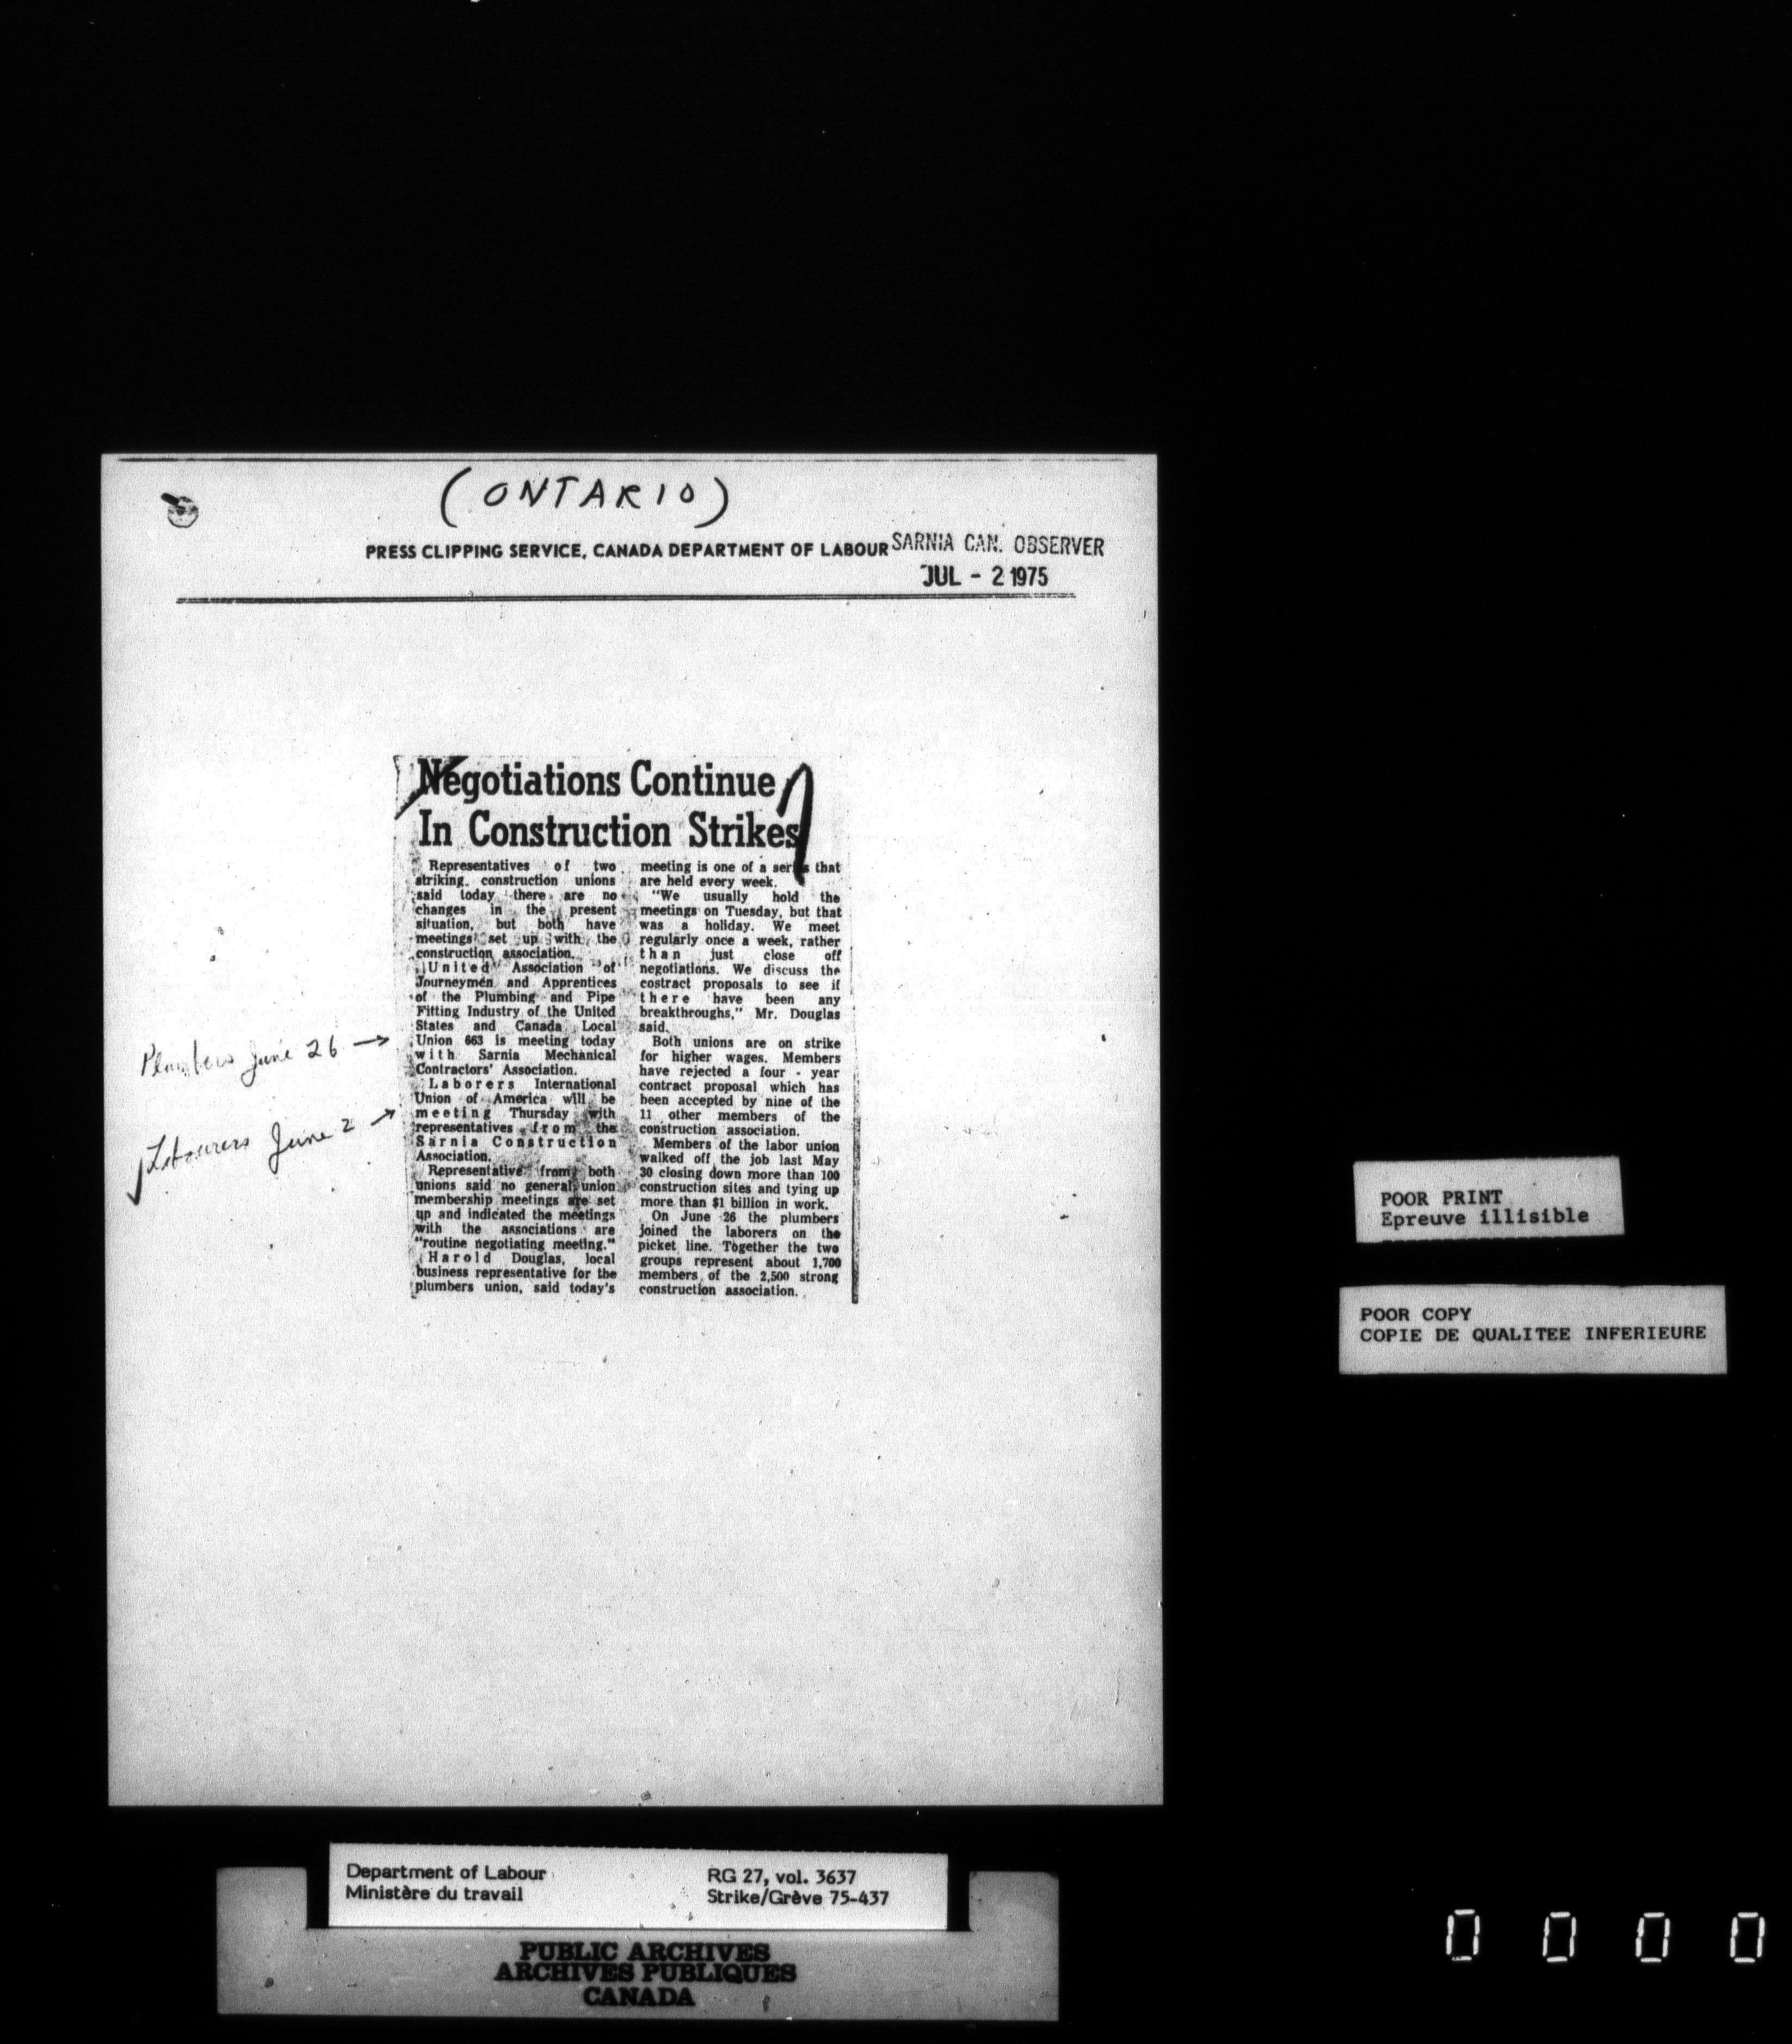 (ONTARIO)
PRESS CLIPPING SERVICE, CANADA DEPARTMENT OF LABOUR SARNIA CAN. OBSERVER
JUL - 2 1975
Negotiations Continue
In Construction Strikes
Representatives of two
striking construction unions
said today there are no
changes in the present
situation, but both have
meetings set up with the
construction association.
United Association of
Journeymen and Apprentices
of the Plumbing and Pipe
Fitting Industry of the United
States and Canada Local
Union 663 is meeting today
with Sarnia Mechanical
Contractors' Association.
Laborers International
Union of America will be
meeting Thursday with
representatives from the
Sarnia Construction
Association.
Representative from both
unions said no general union
membership meetings are set
up and indicated the meetings
with the associations are
"routine negotiating meeting."
Harold Douglas, local
business representative for the
plumbers union, said today's
meeting is one of a series that
are held every week.
"We usually hold the
meetings on Tuesday, but that
was a holiday. We meet
regularly once a week, rather
than just close off
negotiations. We discuss the
costract proposals to see if
there have been any
breakthroughs," Mr. Douglas
said.
Both unions are on strike
for higher wages. Members
have rejected a four - year
contract proposal which has
been accepted by nine of the
11 other members of the
construction association.
Members of the labor union
walked off the job last May
30 closing down more than 100
construction sites and tying up
more than $1 billion in work.
On June 26 the plumbers
joined the laborers on the
picket line. Together the two
groups represent about 1,700
members of the 2,500 strong
construction association.
Plumbers June 26 →
Labourers June 2 →
POOR PRINT
Epreuve illisible
POOR COPY
COPIE DE QUALITEE INFERIEURE
Department of Labour
Ministère du travail
RG 27, vol. 3637
Strike/Grève 75-437
PUBLIC ARCHIVES
ARCHIVES PUBLIQUES
CANADA
0 0 0 0